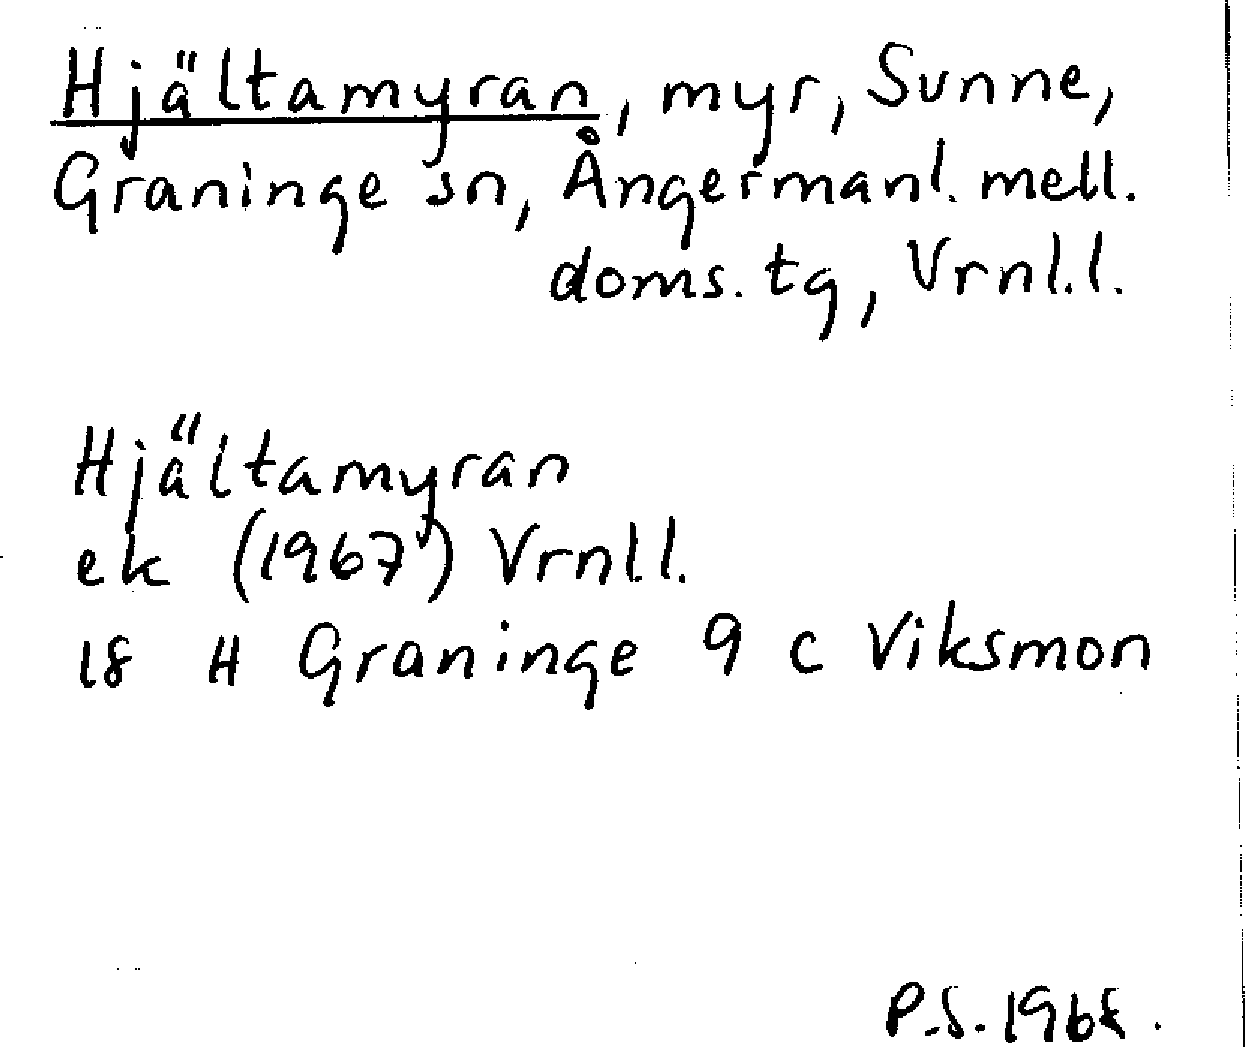 Hjältamyran, myr, Sunne,
Graninge sn, Ångermanl. mell.
doms. tg, Vrnl.l.
Hjältamyran
ek (1967) Vrnl.l.
18 H Graninge 9 c Viksmon
P.S. 1968.